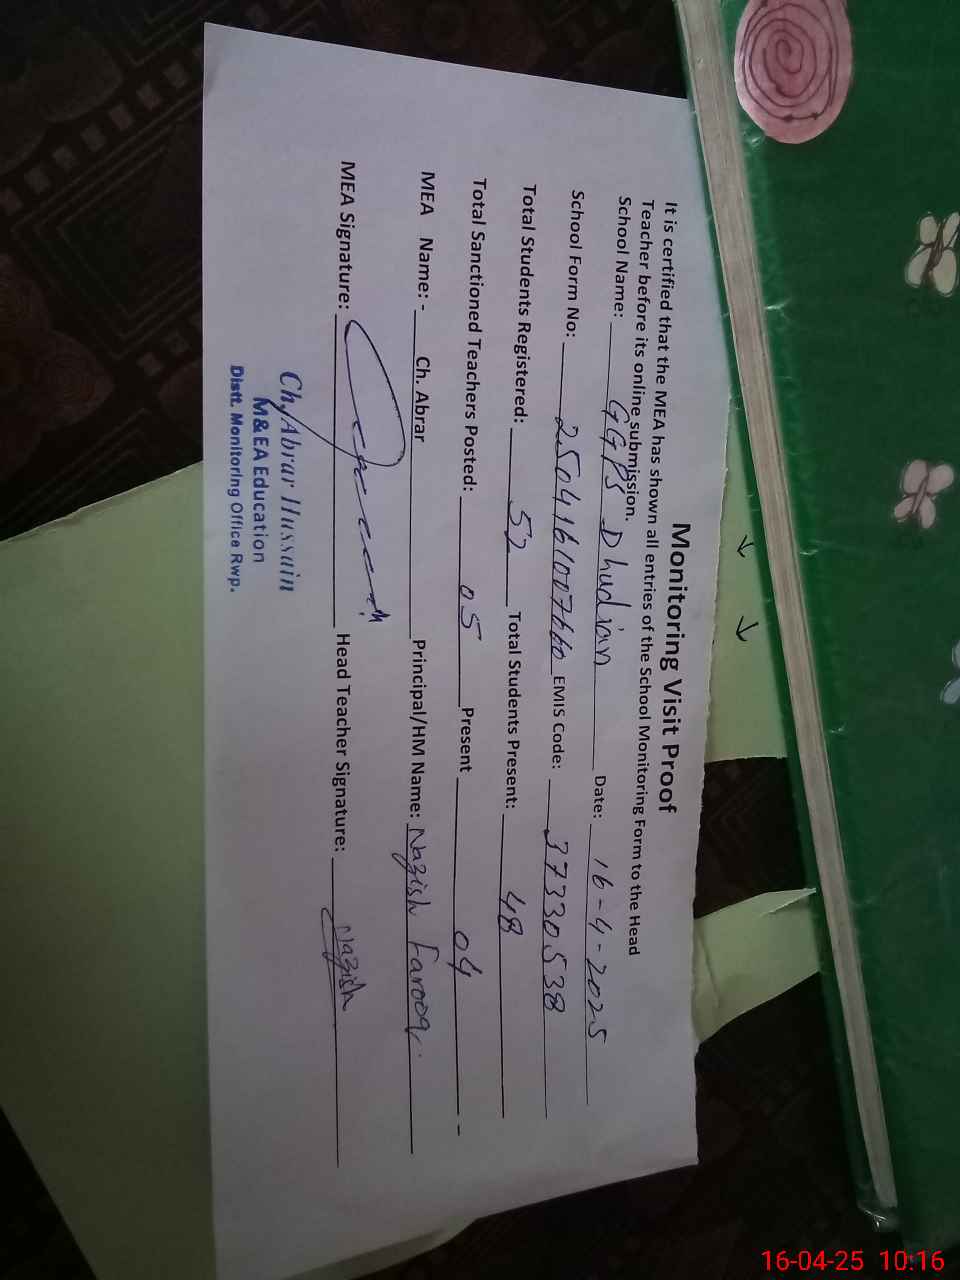 Monitoring Visit Proof
It is certified that the MEA has shown all entries of the School Monitoring Form to the Head
Teacher before its online submission.
School Name: GGPS Dhudian Date: 16-4-2025
School Form No: 2504161007660 EMIS Code: 37330538
Total Students Registered: 52 Total Students Present: 48
Total Sanctioned Teachers Posted: 05 Present 04
MEA Name: - Ch. Abrar Principal/HM Name: Nazish Farooq.
MEA Signature: Head Teacher Signature: Nazish
Ch. Abrar Hussain
M&EA Education
Distt. Monitoring Office Rwp.
16-04-25 10:16